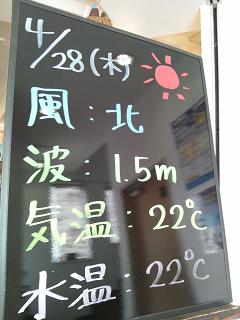 4/28(木)
風:北
波:1.5m
気温:22℃
水温:22℃